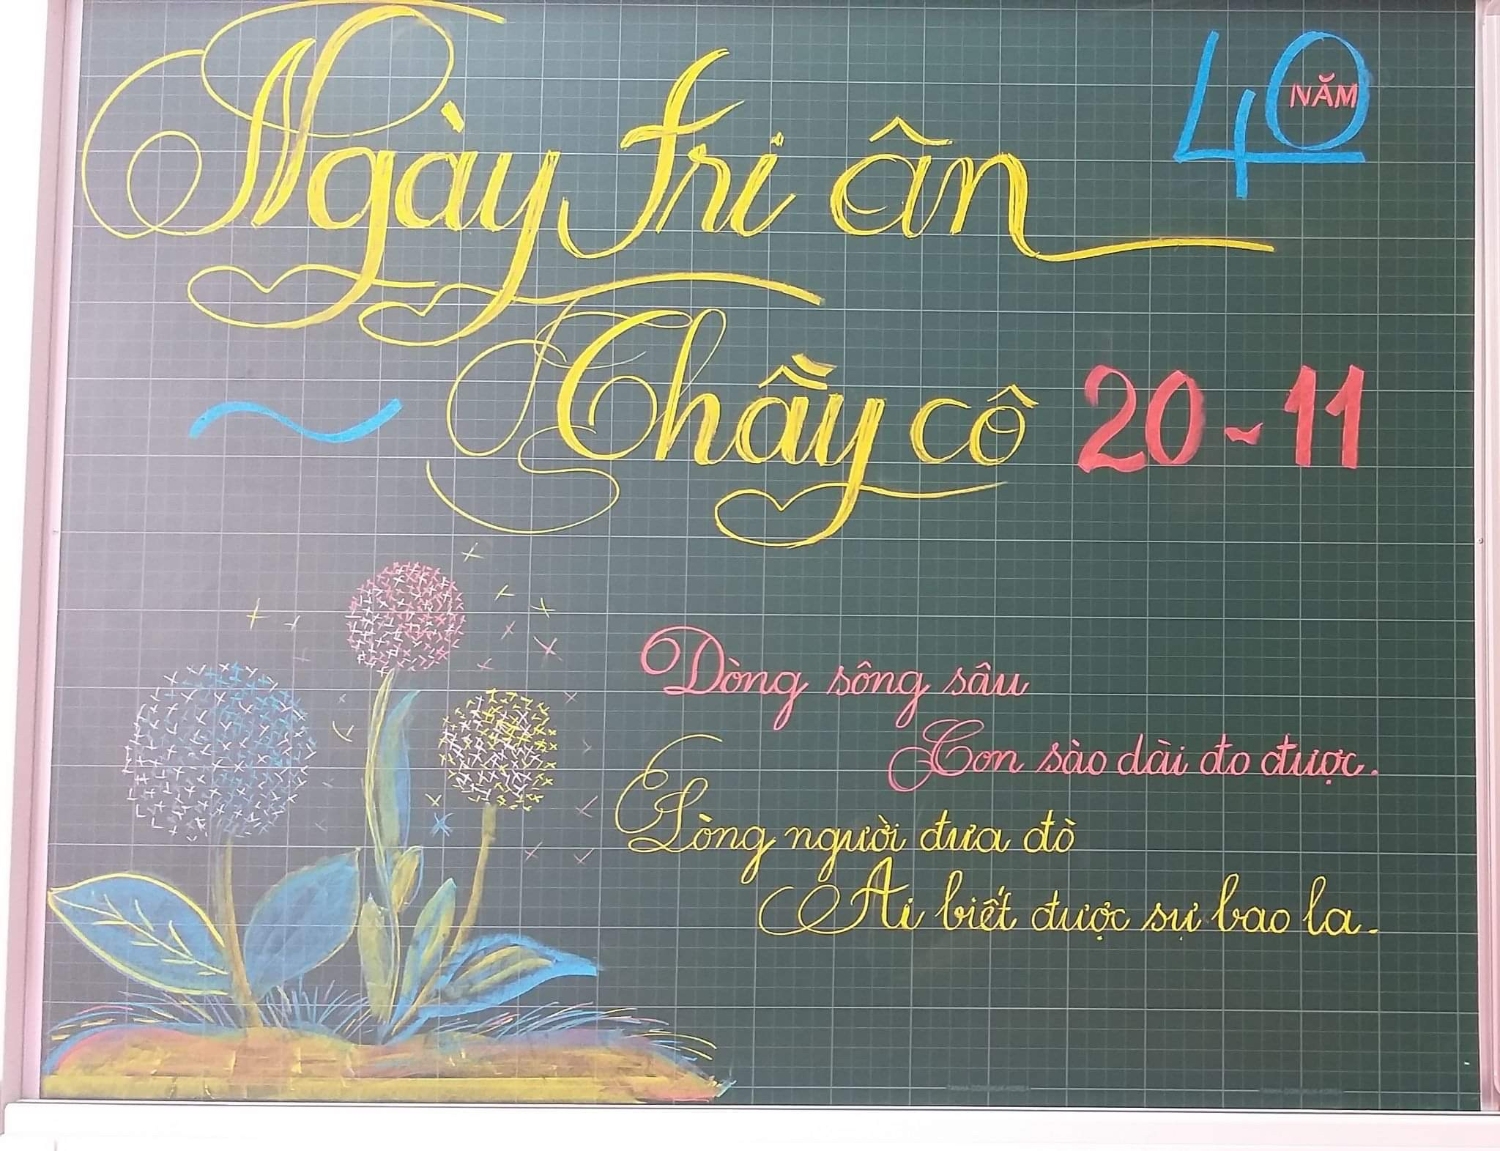 Ngày tri ân
40
NĂM
Thầy cô 20-11
Dòng sông sâu
Con sào dài đo được.
Lòng người đưa đò
Ai biết được sự bao la.